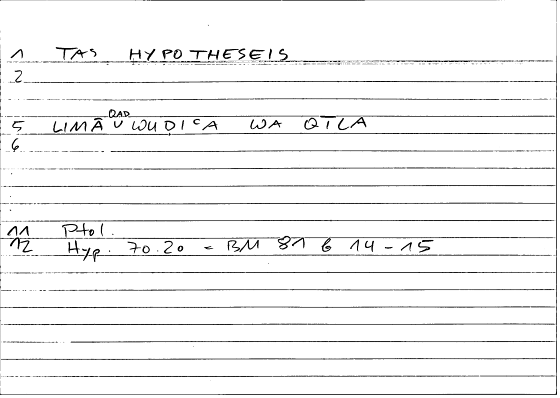 1 TAS HYPOTHESEIS
2
QAD
5 LIMĀ WUDIʿA WA QTLA
6
11 Ptol.
12 Hyp. 70.20 = BM 81 b 14-15